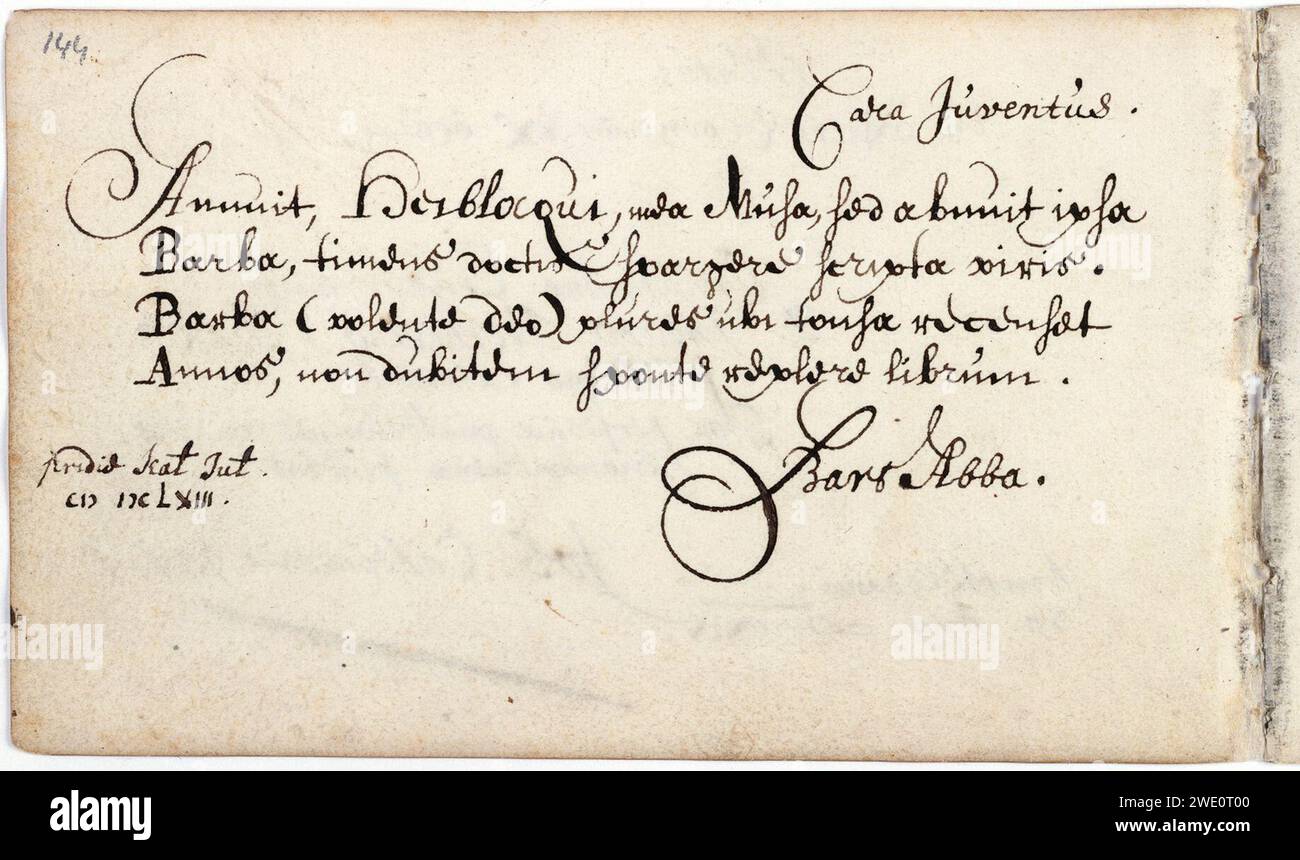 144
Cara Juventus.
Annuit, Herbloqui, mea Musa, sed abnuit ipsa
Barba, timens doctis spargere scripta viris.
Barba (volente deo) plures ubi tonsa recenset
Annos, non dubitem sponte replere librum.
pridie Kal Jul.
CIↃ IↃCLXIII.
Bars Abba.
alamy
alamy
Image ID: 2WE0T00
www.alamy.com